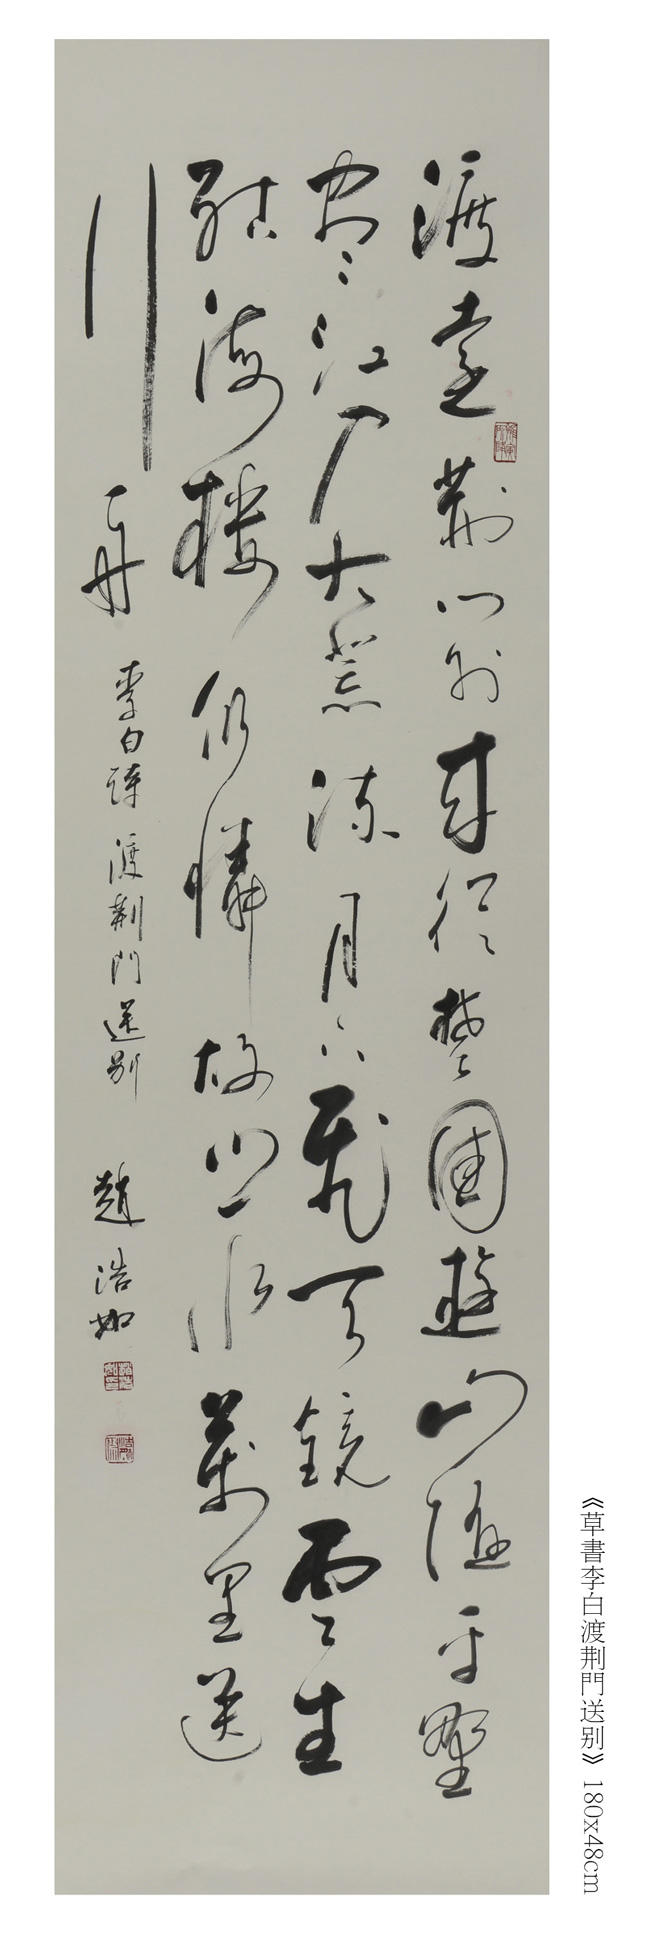 渡遠荊門外來從楚國遊山隨平野
盡江入大荒流月下飛天鏡雲生
結海樓仍憐故鄉水萬里送
行舟 李白詩 渡荊門送別 趙浩如
《草書李白渡荆門送别》 180x48cm